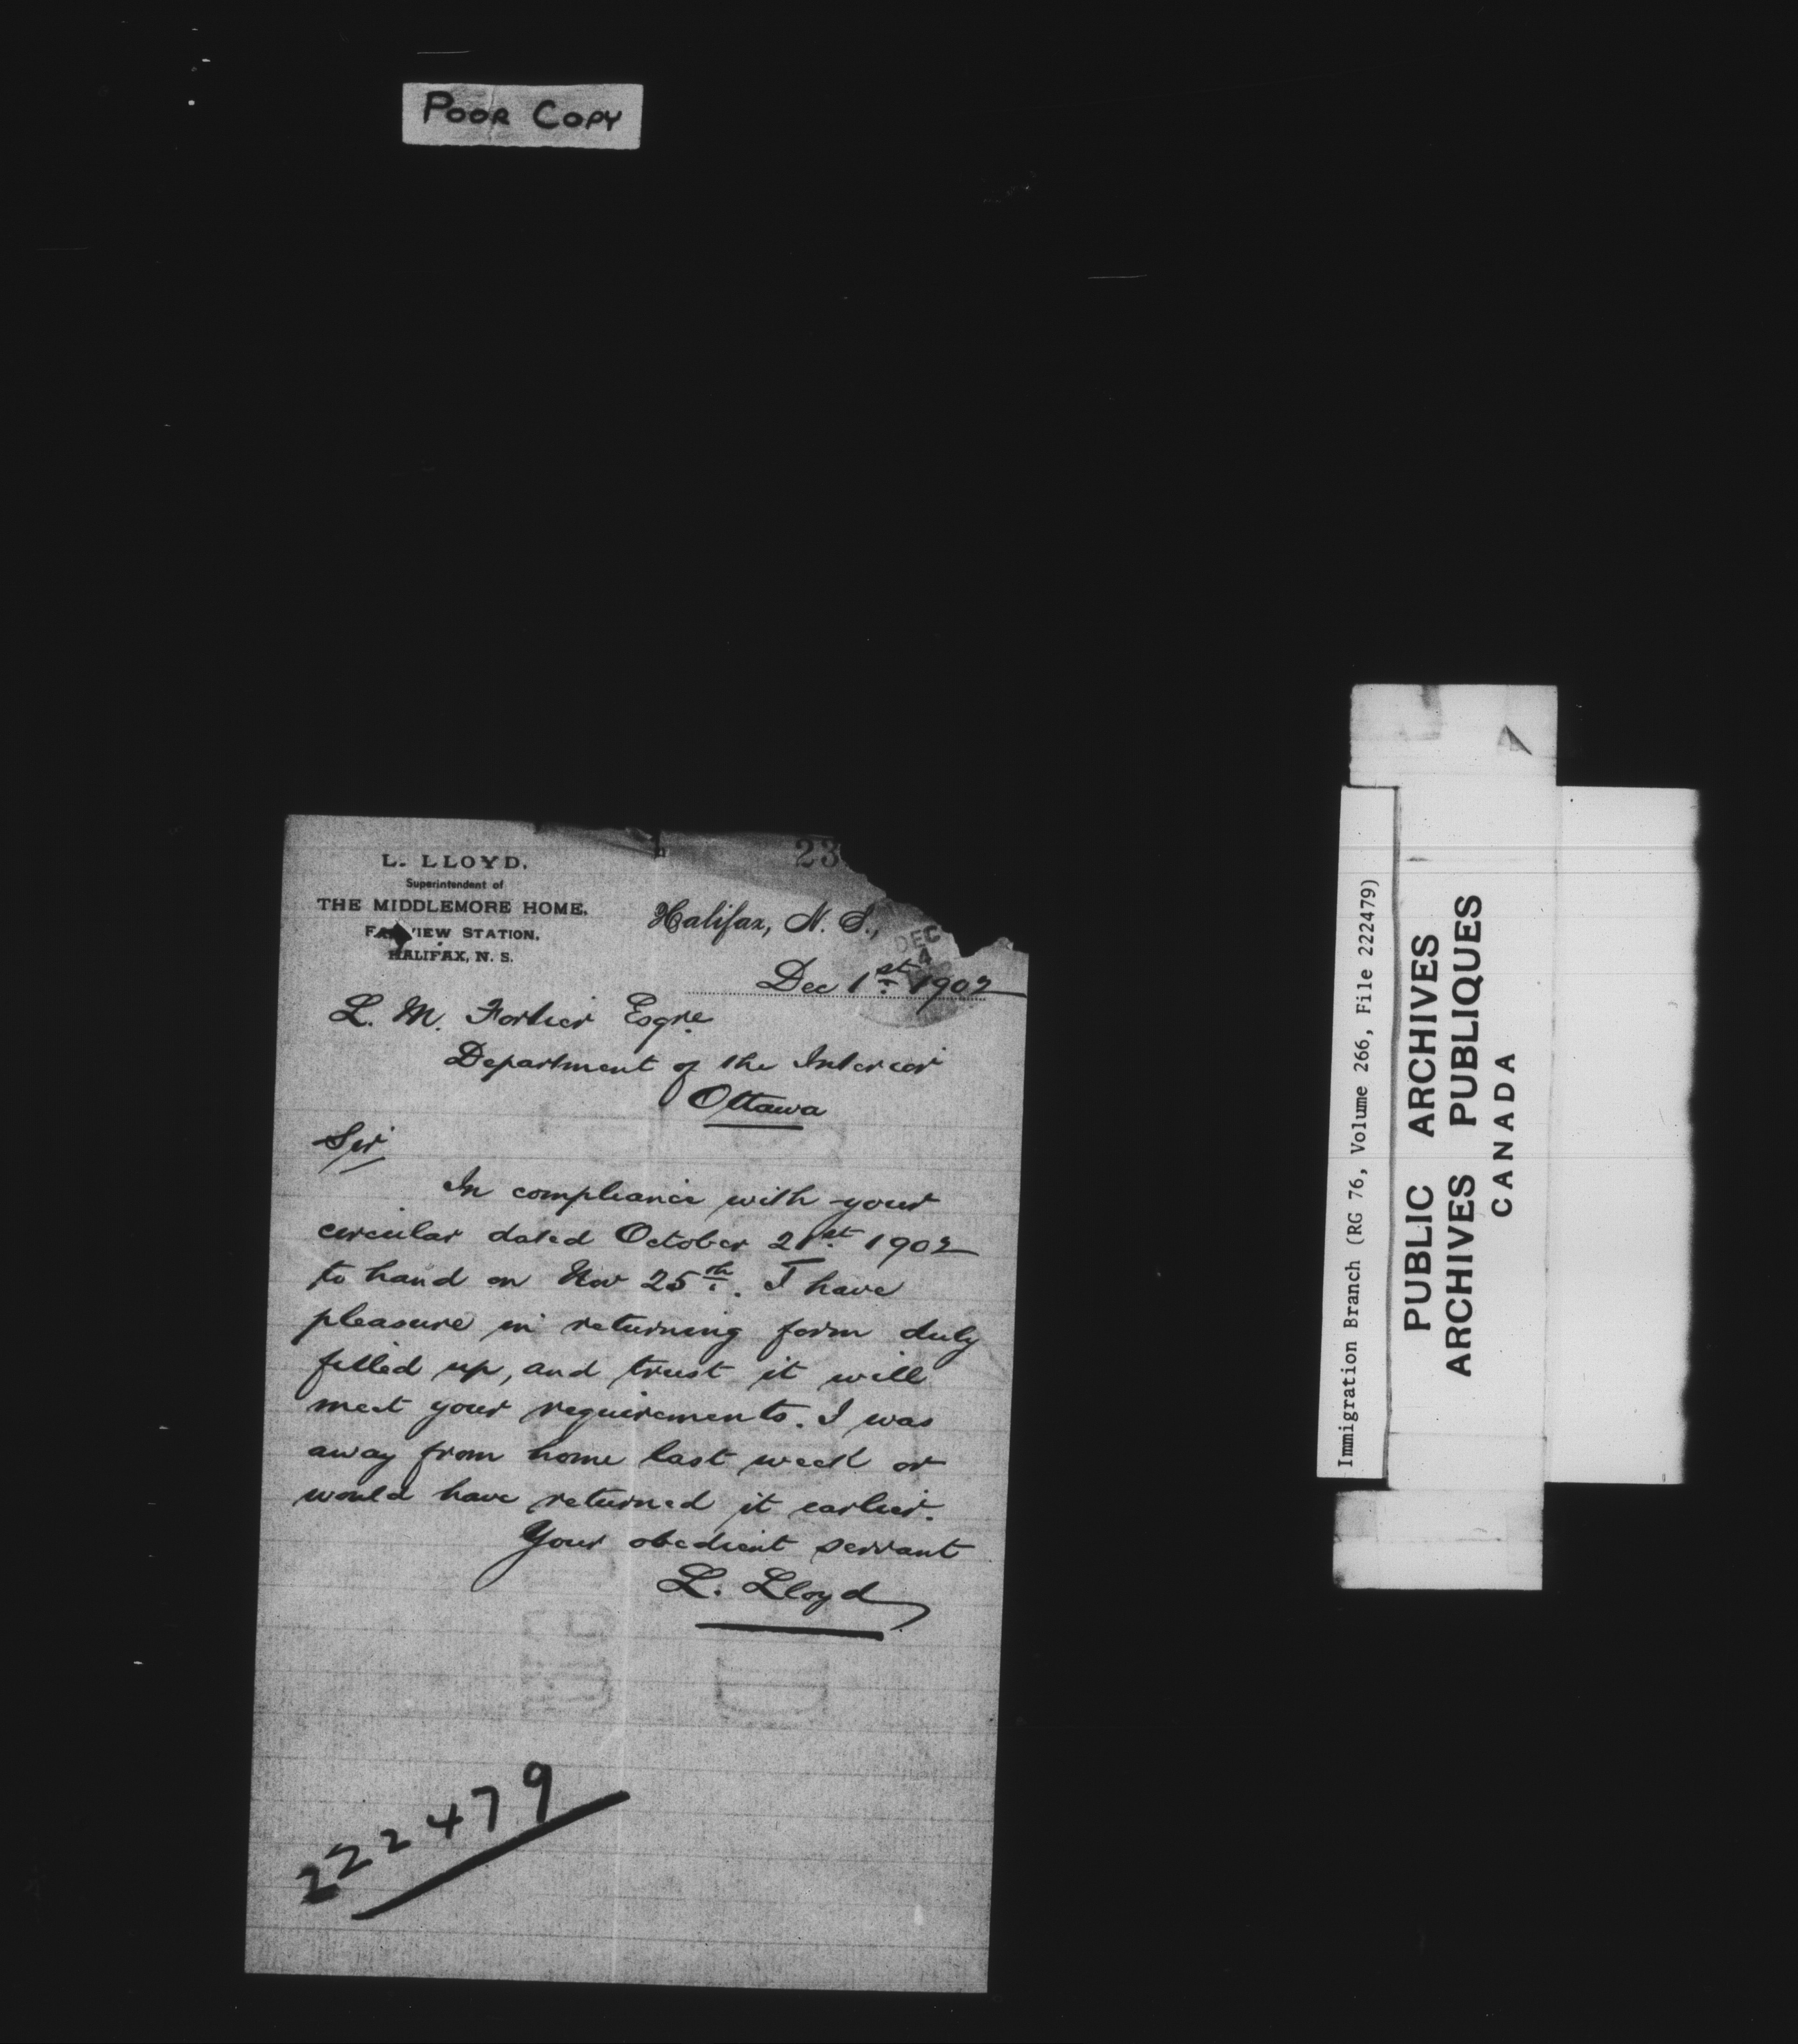 POOR COPY
L. LLOYD,
Superintendent of
THE MIDDLEMORE HOME,
FAIRVIEW STATION,
HALIFAX, N. S.
23
Halifax, N. S.,
DEC
4
Dec 1st 1902
L. M. Fortier Esqre
Department of the Interior
Ottawa
Sir
In compliance with your
circular dated October 21st 1902
to hand on Nov 25th. I have
pleasure in returning form duly
filled up, and trust it will
meet your requirements. I was
away from home last week or
would have returned it earlier.
Your obedient servant
L. Lloyd
222479
Immigration Branch (RG 76, Volume 266, File 222479)
PUBLIC ARCHIVES
ARCHIVES PUBLIQUES
CANADA